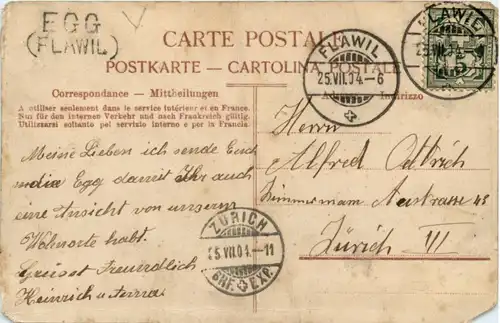 EGG
(FLAWIL)
CARTE POSTALE
POSTKARTE - CARTOLINA POSTALE
FLAWIL
25.VII.04.-6
FLAWIL
25.VII.04.
Correspondance - Mitteilungen
Indirizzo
A utiliser seulement dans le service intérieur et en France.
Nur für den internen Verkehr und nach Frankreich gültig.
Utilizzarsi soltanto pel servizio interno e per la Francia.
Meine Lieben ich sende Euch
Egg damit Ihr auch
eine Ansicht von unserm
Wohnorte habt.
Grüsst Freundlich
Heinrich u
Herrn
Alfred
Zimmermann
Zürich III
ZÜRICH
25.VII.04.-11
BRF. EXP.